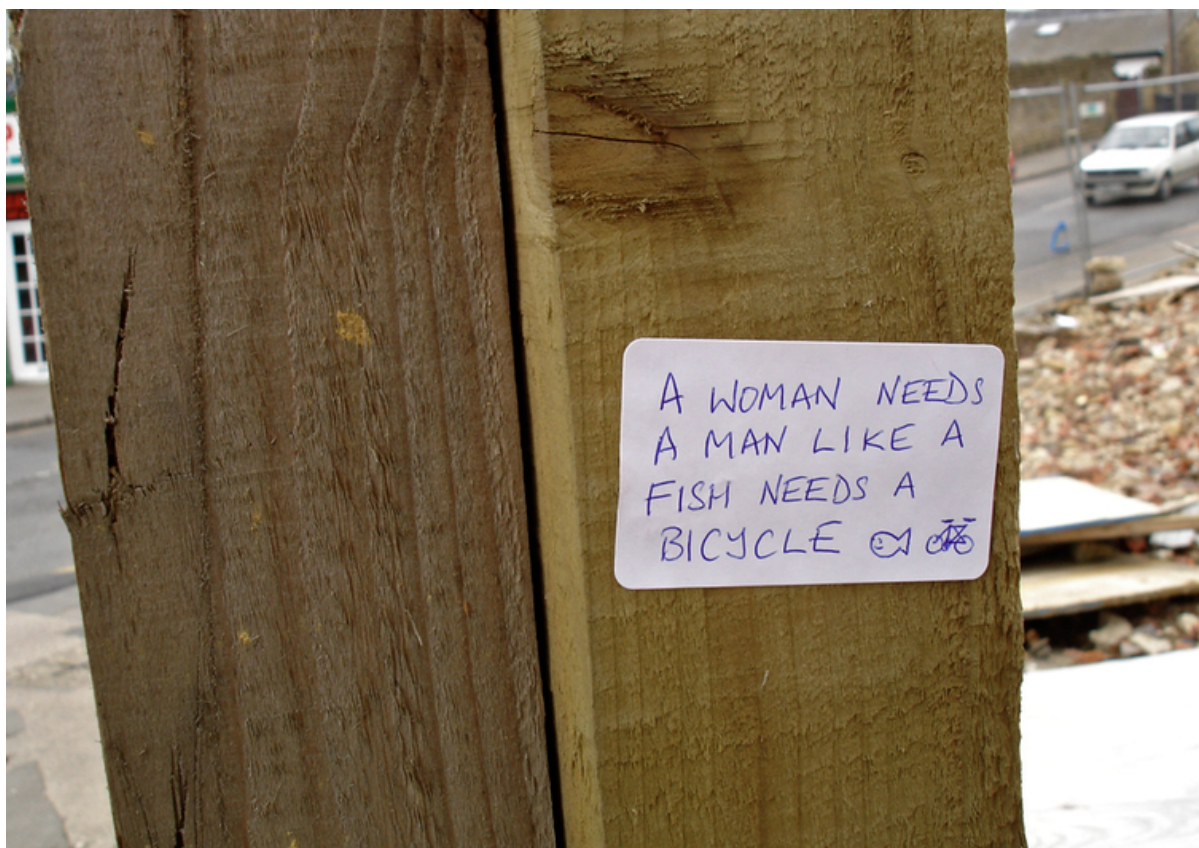 A WOMAN NEEDS
A MAN LIKE A
FISH NEEDS A
BICYCLE